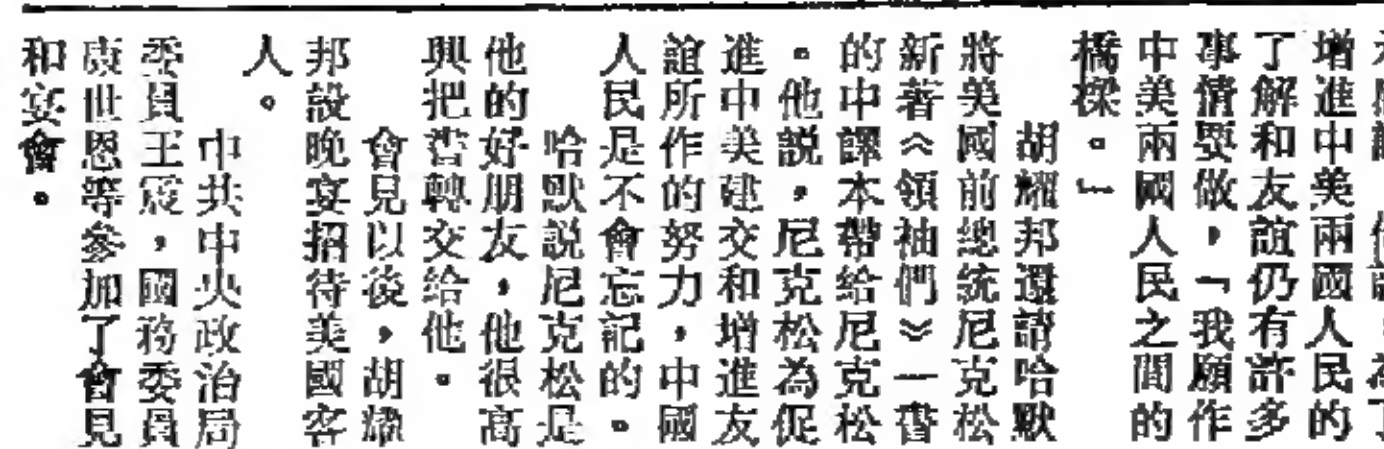 增進中美兩國人民的
了解和友誼仍有許多
事情要做，「我願作
中美兩國人民之間的
橋樑。」
胡耀邦還請哈默
將美國前總統尼克松
新著《領袖們》一書
的中譯本帶給尼克松
。他說，尼克松為促
進中美建交和增進友
誼所作的努力，中國
人民是不會忘記的。
哈默說尼克松是
他的好朋友，他很高
興把書轉交給他。
會見以後，胡耀
邦設晚宴招待美國客
人。
中共中央政治局
委員王震，國務委員
康世恩等參加了會見
和宴會。